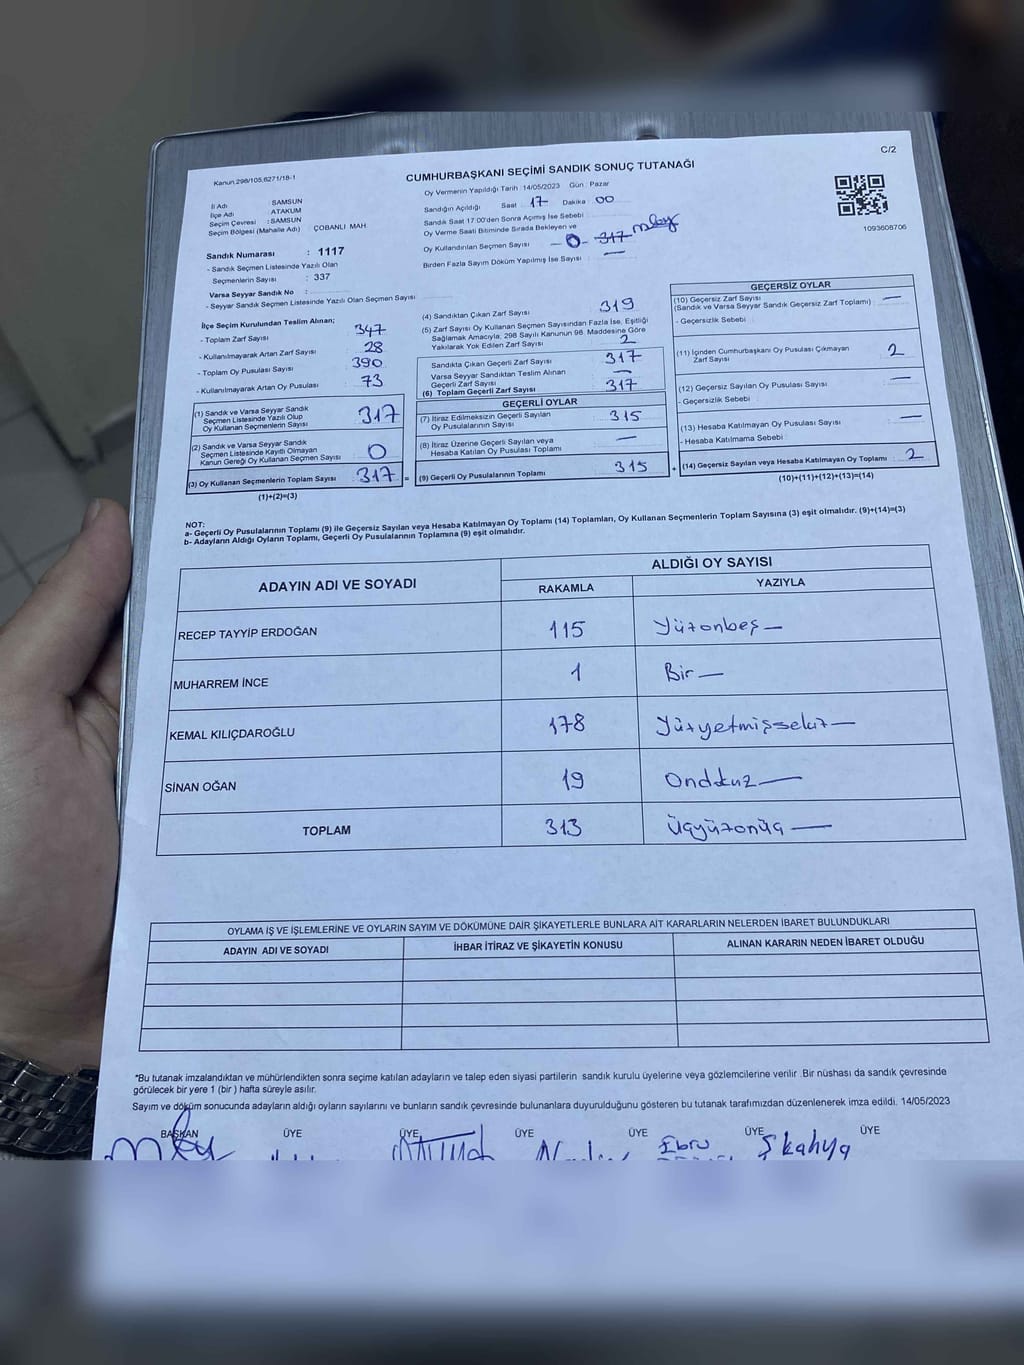 C/2
Kanun.298/105.6271/18-1
CUMHURBAŞKANI SEÇİMİ SANDIK SONUÇ TUTANAĞI
Oy Vermenin Yapıldığı Tarih : 14/05/2023 Gün : Pazar
İl Adı : SAMSUN
İlçe Adı : ATAKUM
Seçim Çevresi : SAMSUN
Seçim Bölgesi (Mahalle Adı) ÇOBANLI MAH.
Sandığın Açıldığı Saat 17 Dakika 00
Sandık Saat 17.00'den Sonra Açımış İse Sebebi
Oy Verme Saati Bitiminde Sırada Bekleyen ve
Oy Kullandırılan Seçmen Sayısı -0- 317
Birden Fazla Sayım Döküm Yapılmış İse Sayısı : —
1093608706
Sandık Numarası : 1117
- Sandık Seçmen Listesinde Yazılı Olan
Seçmenlerin Sayısı : 337
Varsa Seyyar Sandık No :
- Seyyar Sandık Seçmen Listesinde Yazılı Olan Seçmen Sayısı
İlçe Seçim Kurulundan Teslim Alınan;
- Toplam Zarf Sayısı 347
- Kullanılmayarak Artan Zarf Sayısı 28
- Toplam Oy Pusulası Sayısı 390
- Kullanılmayarak Artan Oy Pusulası 73
(1) Sandık ve Varsa Seyyar Sandık
Seçmen Listesinde Yazılı Olup
Oy Kullanan Seçmenlerin Sayısı 317
(2) Sandık ve Varsa Seyyar Sandık
Seçmen Listesinde Kayıtlı Olmayan
Kanun Gereği Oy Kullanan Seçmen Sayısı 0
(3) Oy Kullanan Seçmenlerin Toplam Sayısı 317 =
(1)+(2)=(3)
(4) Sandıktan Çıkan Zarf Sayısı 319
(5) Zarf Sayısı Oy Kullanan Seçmen Sayısından Fazla İse, Eşitliği
Sağlamak Amacıyla, 298 Sayılı Kanunun 98. Maddesine Göre
Yakılarak Yok Edilen Zarf Sayısı 2
Sandıkta Çıkan Geçerli Zarf Sayısı 317
Varsa Seyyar Sandıktan Teslim Alınan
Geçerli Zarf Sayısı —
(6) Toplam Geçerli Zarf Sayısı 317
GEÇERLİ OYLAR
(7) İtiraz Edilmeksizin Geçerli Sayılan
Oy Pusulalarının Sayısı 315
(8) İtiraz Üzerine Geçerli Sayılan veya
Hesaba Katılan Oy Pusulası Toplamı —
(9) Geçerli Oy Pusulalarının Toplamı 315 +
GEÇERSİZ OYLAR
(10) Geçersiz Zarf Sayısı —
(Sandık ve Varsa Seyyar Sandık Geçersiz Zarf Toplamı)
- Geçersizlik Sebebi :
(11) İçinden Cumhurbaşkanı Oy Pusulası Çıkmayan
Zarf Sayısı 2
(12) Geçersiz Sayılan Oy Pusulası Sayısı —
- Geçersizlik Sebebi :
(13) Hesaba Katılmayan Oy Pusulası Sayısı —
- Hesaba Katılmama Sebebi
(14) Geçersiz Sayılan veya Hesaba Katılmayan Oy Toplamı 2
(10)+(11)+(12)+(13)=(14)
NOT:
a- Geçerli Oy Pusulalarının Toplamı (9) ile Geçersiz Sayılan veya Hesaba Katılmayan Oy Toplamı (14) Toplamları, Oy Kullanan Seçmenlerin Toplam Sayısına (3) eşit olmalıdır. (9)+(14)=(3)
b- Adayların Aldığı Oyların Toplamı, Geçerli Oy Pusulalarının Toplamına (9) eşit olmalıdır.
ADAYIN ADI VE SOYADI ALDIĞI OY SAYISI
RAKAMLA YAZIYLA
RECEP TAYYİP ERDOĞAN 115 Yüzonbeş —
MUHARREM İNCE 1 Bir —
KEMAL KILIÇDAROĞLU 178 Yüzyetmişsekiz —
SİNAN OĞAN 19 Ondokuz —
TOPLAM 313 Üçyüzonüç —
OYLAMA İŞ VE İŞLEMLERİNE VE OYLARIN SAYIM VE DÖKÜMÜNE DAİR ŞİKAYETLERLE BUNLARA AİT KARARLARIN NELERDEN İBARET BULUNDUKLARI
ADAYIN ADI VE SOYADI İHBAR İTİRAZ VE ŞİKAYETİN KONUSU ALINAN KARARIN NEDEN İBARET OLDUĞU
*Bu tutanak imzalandıktan ve mühürlendikten sonra seçime katılan adayların ve talep eden siyasi partilerin sandık kurulu üyelerine veya gözlemcilerine verilir .Bir nüshası da sandık çevresinde
görülecek bir yere 1 (bir ) hafta süreyle asılır.
Sayım ve döküm sonucunda adayların aldığı oyların sayılarını ve bunların sandık çevresinde bulunanlara duyurulduğunu gösteren bu tutanak tarafımızdan düzenlenerek imza edildi. 14/05/2023
BAŞKAN ÜYE ÜYE ÜYE ÜYE ÜYE ÜYE
Ebru Şkahya